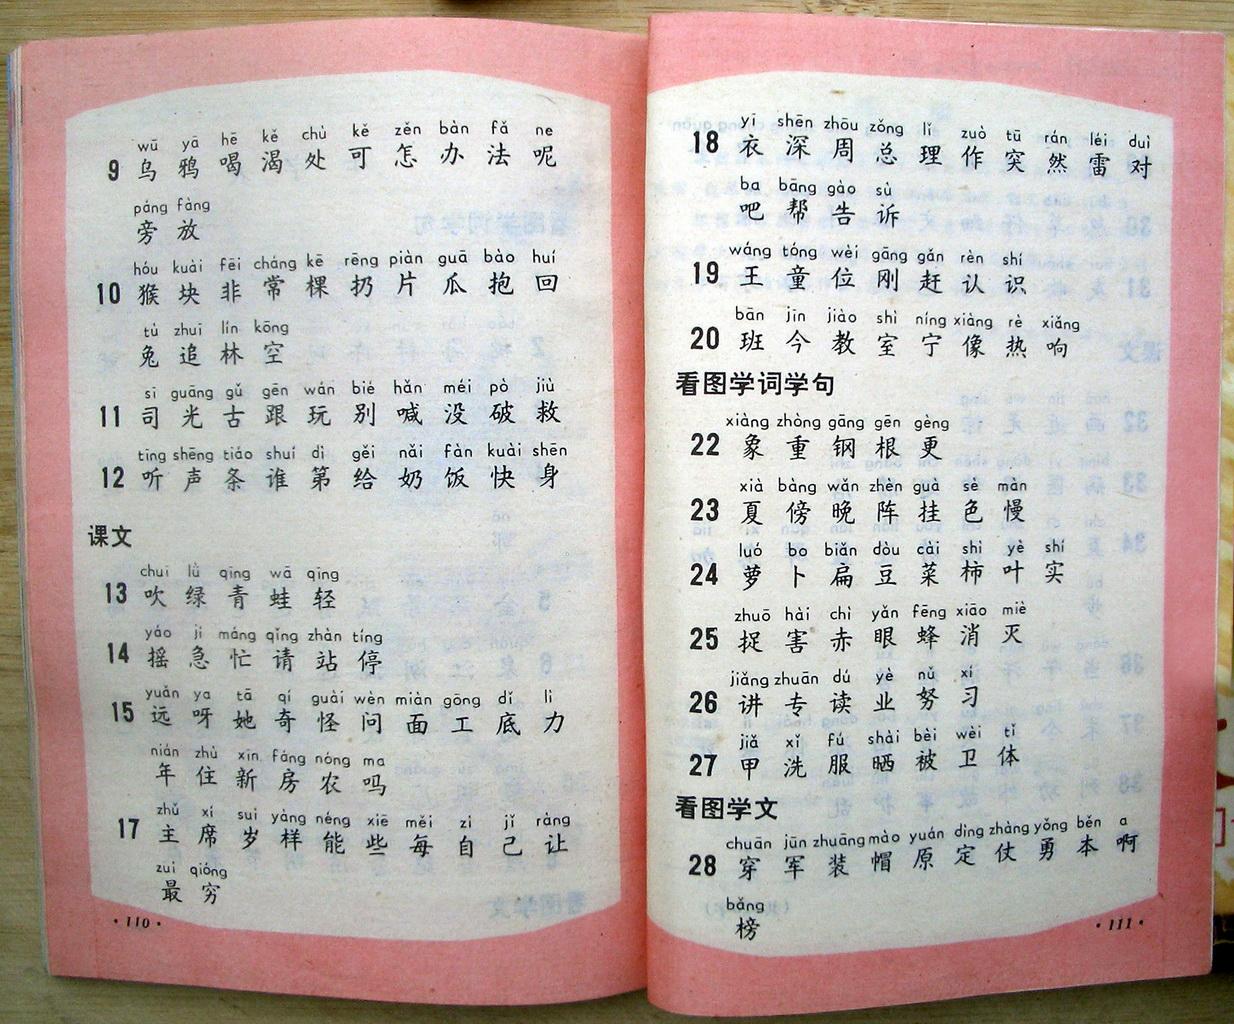 wū yā hē kě chù kě zěn bàn fǎ ne
9 乌 鸦 喝 渴 处 可 怎 办 法 呢
páng fàng
旁 放
hóu kuài fēi cháng kē rēng piàn guā bào huí
10 猴 块 非 常 棵 扔 片 瓜 抱 回
tù zhuī lín kōng
兔 追 林 空
sī guāng gǔ gēn wán bié hǎn méi pò jiù
11 司 光 古 跟 玩 别 喊 没 破 救
tīng shēng tiáo shuí dì gěi nǎi fàn kuài shēn
12 听 声 条 谁 第 给 奶 饭 快 身
课文
chuī lǜ qīng wā qīng
13 吹 绿 青 蛙 轻
yáo jí máng qǐng zhàn tíng
14 摇 急 忙 请 站 停
yuǎn ya tā qí guài wèn miàn gōng dǐ lì
15 远 呀 她 奇 怪 问 面 工 底 力
nián zhù xīn fáng nóng ma
年 住 新 房 农 吗
zhǔ xí suì yàng néng xiē měi zì jǐ ràng
17 主 席 岁 样 能 些 每 自 己 让
zuì qióng
最 穷
·110·
yī shēn zhōu zǒng lǐ zuò tū rán léi duì
18 衣 深 周 总 理 作 突 然 雷 对
ba bāng gào sù
吧 帮 告 诉
wáng tóng wèi gāng gǎn rèn shí
19 王 童 位 刚 赶 认 识
bān jīn jiào shì níng xiàng rè xiǎng
20 班 今 教 室 宁 像 热 响
看图学词学句
xiàng zhòng gāng gēn gèng
22 象 重 钢 根 更
xià bàng wǎn zhèn guà sè màn
23 夏 傍 晚 阵 挂 色 慢
luó bo biǎn dòu cài shì yè shí
24 萝 卜 扁 豆 菜 柿 叶 实
zhuō hài chì yǎn fēng xiāo miè
25 捉 害 赤 眼 蜂 消 灭
jiǎng zhuān dú yè nǔ xí
26 讲 专 读 业 努 习
jiǎ xǐ fú shài bèi wèi tǐ
27 甲 洗 服 晒 被 卫 体
看图学文
chuān jūn zhuāng mào yuán dìng zhàng yǒng běn a
28 穿 军 装 帽 原 定 仗 勇 本 啊
bǎng
榜
·111·